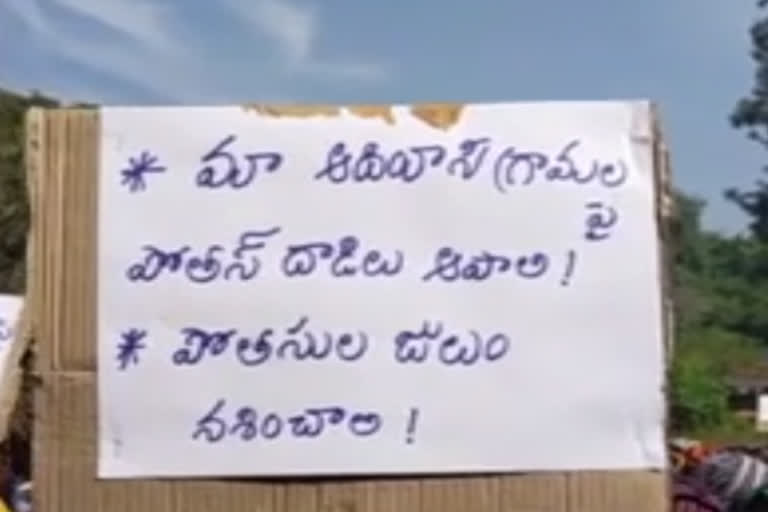 * మా ఆదివాసీ గ్రామల
పై
పోతస్ దాడిలు ఆపాలి!
* పోతసుల జులుం
నశించాలి!